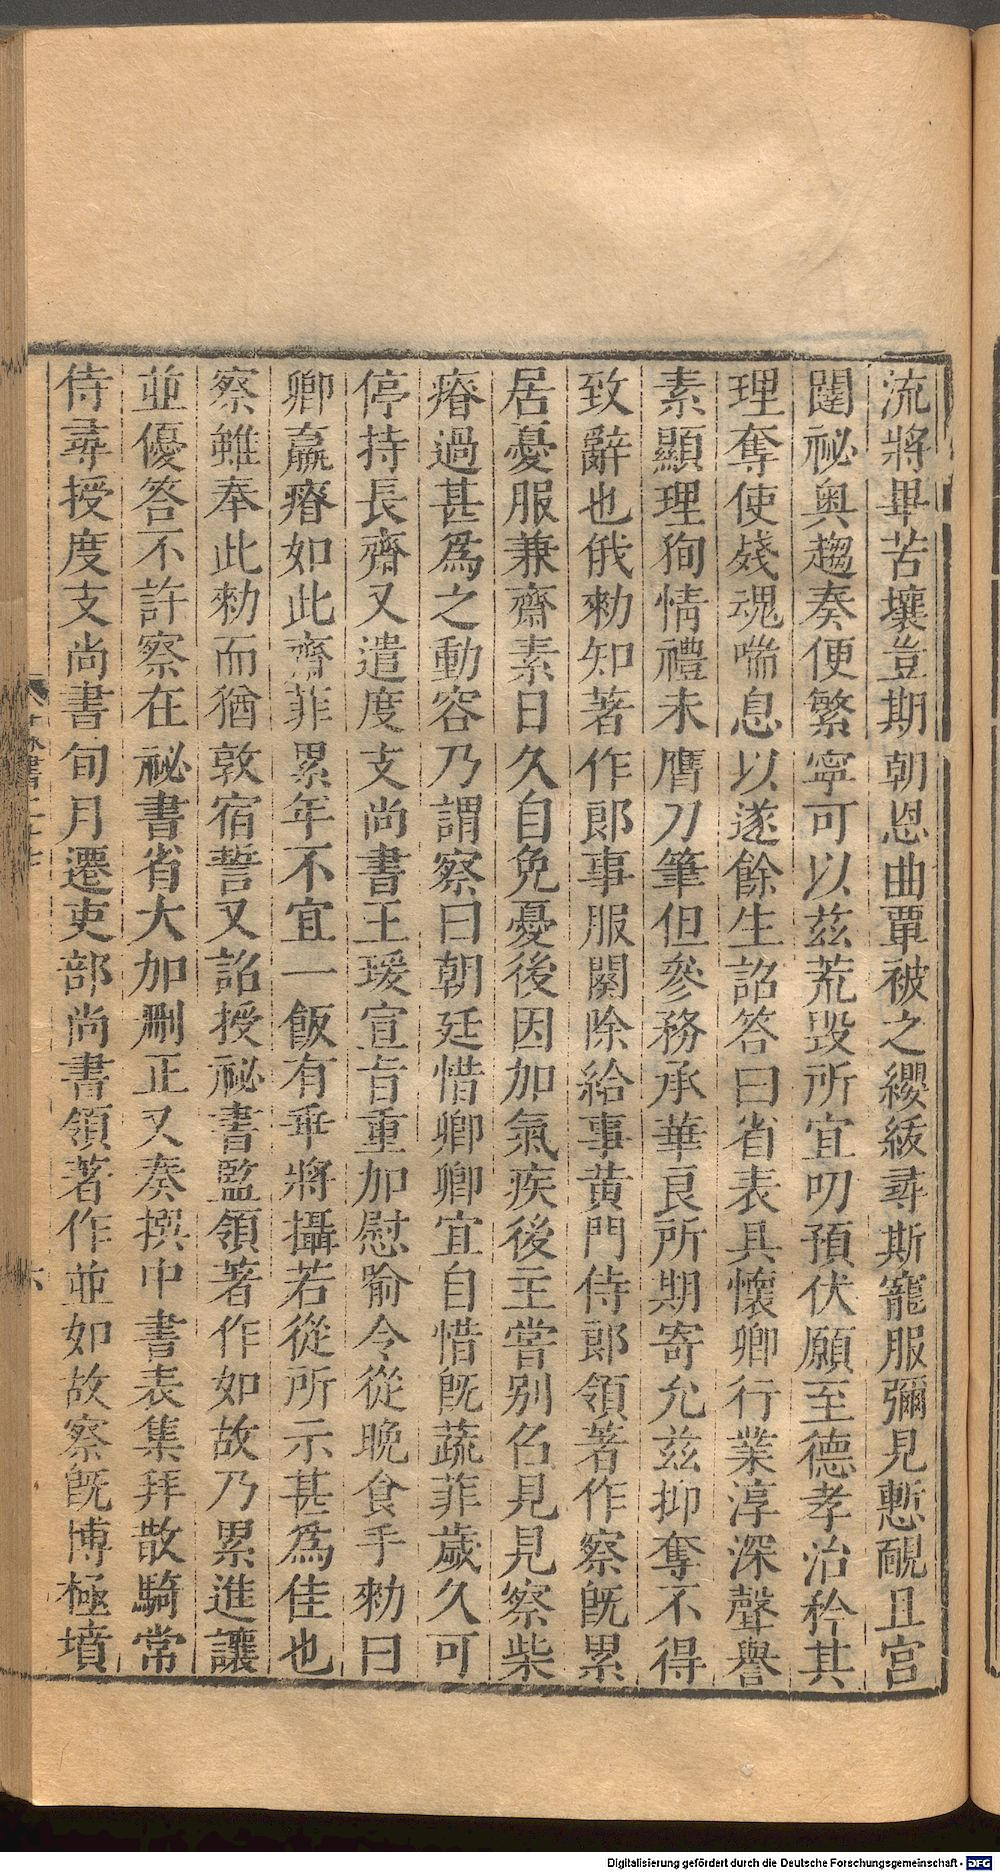 流將畢苦壤豈期朝恩曲覃被之纓紱尋斯寵服彌見慙靦且宮
闥祕奧趨奏便繁寧可以茲荒毀所宜叨預伏願至德孝治矜其
理奪使殘魂喘息以遂餘生詔答曰省表具懷卿行業淳深聲譽
素顯理狥情禮未膺刀筆但參務承華良所期寄允茲抑奪不得
致辭也俄勑知著作郎事服闋除給事黃門侍郎領著作察旣累
居憂服兼齋素日久自免憂後因加氣疾後主嘗別召見見察柴
瘠過甚爲之動容乃謂察曰朝廷惜卿卿宜自惜旣蔬菲歲久可
停持長齋又遣度支尚書王瑗宣旨重加慰喻令從晚食手勑曰
卿羸瘠如此齋菲累年不宜一飯有乖將攝若從所示甚爲佳也
察雖奉此勑而猶敦宿誓又詔授祕書監領著作如故乃累進讓
並優答不許察在祕書省大加刪正又奏撰中書表集拜散騎常
侍尋授度支尚書旬月遷吏部尚書領著作並如故察旣博極墳
Digitalisierung gefördert durch die Deutsche Forschungsgemeinschaft - DFG